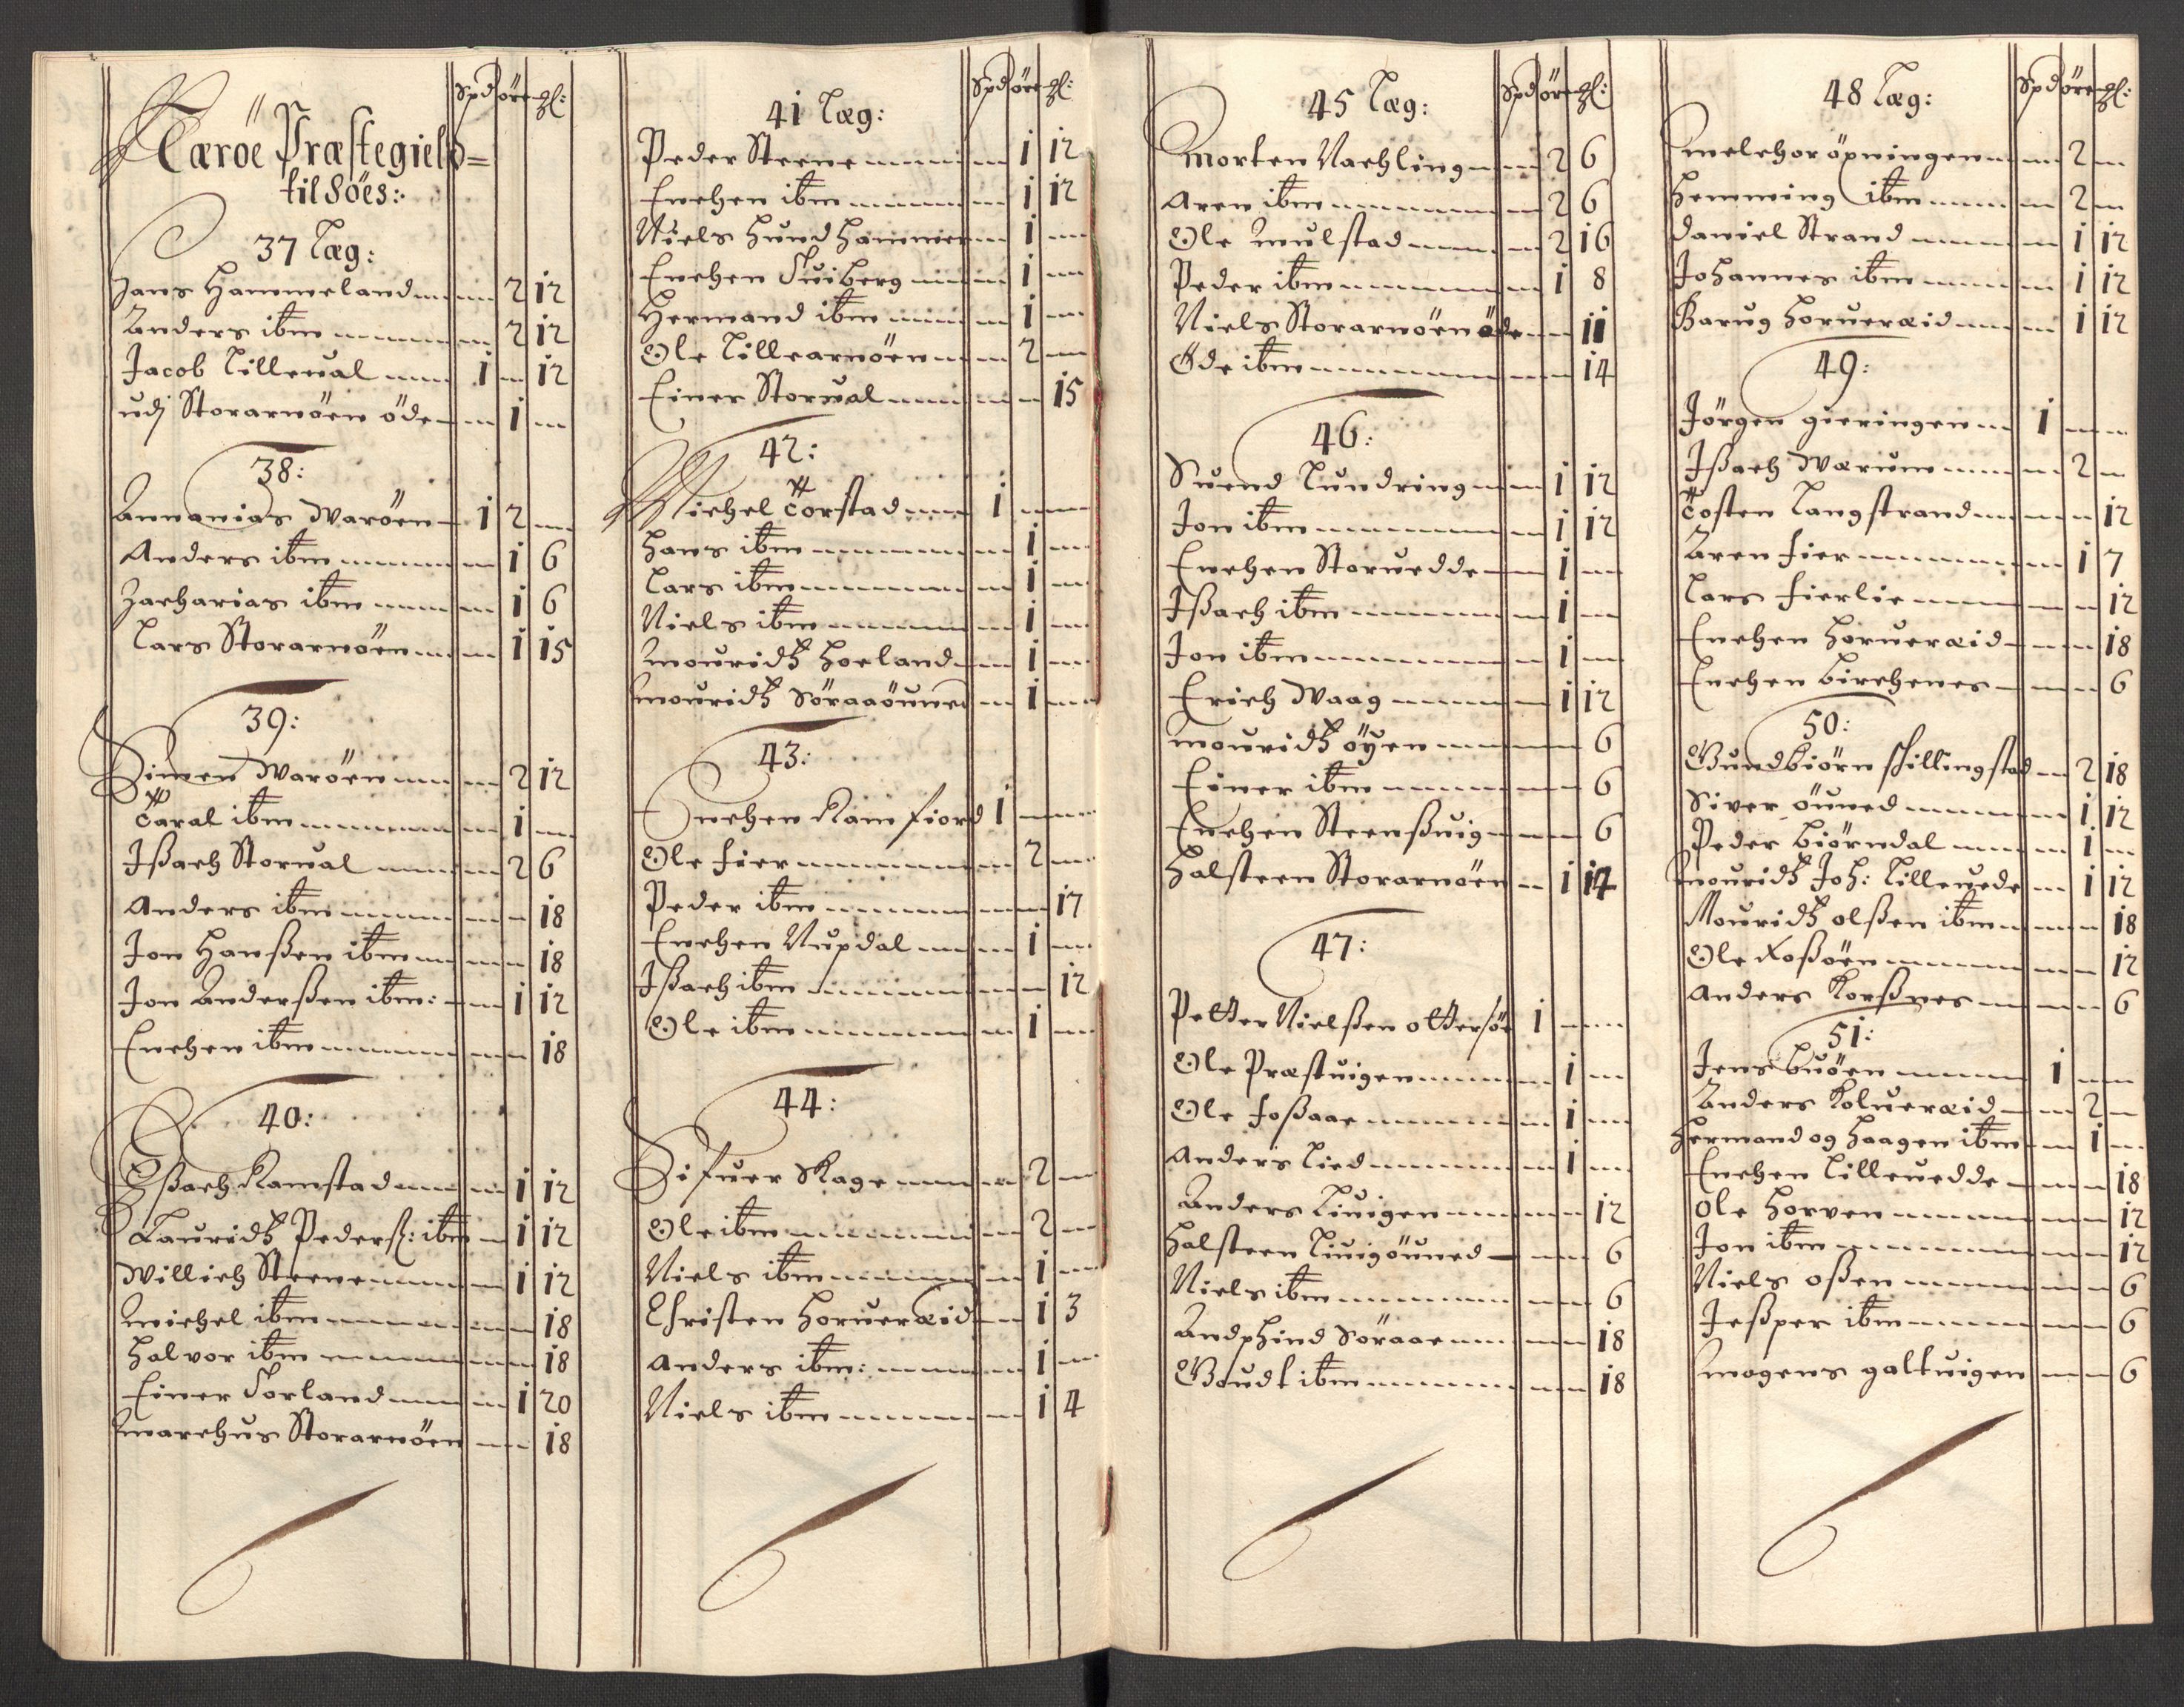 Spd öre ₰:
Næröe Præstegield=
til Söes:
37 Læg:
Hans Hammeland 2 12
Anders ibm 2 12
Jacob Lilleval 1 – 12
udj Storarnöen öde – 1 –
38:
Annanias Waröen 1 2 –
Anders ibm 1 6
Zacharias ibm 1 6
Lars Storarnöen 1 15
39:
Simen Waröen 2 12
Taral ibm 1 –
Ißach Storval 2 6
Anders ibm 18
Jon Hanßen ibm 18
Jon Anderßen ibm: 1 12
Enchen ibm 18
40:
Ißach Ramstad 1 12
Lauridtz Pederß: ibm 1 12
Willich Steene 1 12
Michel ibm 18
Halvor ibm 18
Einer Torland 1 20
Marchus Storarnöen 18
Spd öre ₰:
41 Læg:
Peder Steene 1 12
Enchen ibm 1 12
Niels Hundhammer 1 –
Enchen Suiberg 1 –
Hermand ibm 1 –
Ole Lillearnöen 2 –
Einer Storval 15
42:
Michel Torstad 1 –
Hans ibm 1 –
Lars ibm 1 –
Niels ibm 1 –
Mouridtz Horland 1 –
Mouridtz Söraaöuned 1 –
43:
Enchen Ramfiord 1 –
Ole fier 2 –
Peder ibm 17
Enchen Nupdal 1 –
Ißach ibm 12
Ole ibm 1 –
44:
Sifuer Skage 2 –
Ole ibm 2 –
Niels ibm 1 –
Christen Horueræid 1 3
Anders ibm: 1 –
Niels ibm 1 4
Spd öre ₰:
45 Læg:
Morten Nachling 2 6
Aren ibm 2 6
Ole Mulstad 2 16
Peder ibm 1 8
Niels Storarnöen öde 11
Öde ibm 14
46:
Suend Lundring 1 12
Jon ibm 1 12
Enchen Storuedde 1 –
Ißach ibm 1 –
Jon ibm 1 –
Erich Waag 1 12
Mouridtz öyen 6
Einer ibm 6
Enchen Steenßuig 6
Halsteen Storarnöen 1 14
47:
Petter Nielßen ottersöe 1 –
Ole Præstuigen 1 –
Ole foßaae 1 –
Anders Lied 1 –
Anders Liuigen 12
Halsteen Liuigöuned 6
Niels ibm 6
Andphind Söraae 18
Goudt ibm 18
Spd öre ₰:
48 Læg:
Melchor öpningen 2 –
Hemming ibm 2 –
Daniel Strand 1 12
Johannes ibm 1 12
Barug Horueræid 1 12
49:
Jörgen gieringen 1 –
Ißach Wærum 2 –
Tosten Langstrand 12
Aren fier 1 7
Lars fierlie 12
Enchen Horueræid 18
Enchen Birchenes 6
50:
Gundbiörn skillingstad 2 18
Siver öuned 1 12
Peder Biörndal 1 –
Mouridtz Joh: Lilleuede 1 12
Mouridtz olßen ibm 18
Ole Roßöen 12
Anders Korßnes 6
51:
Jens buöen 1 –
Anders Kolueræid 2 –
Hermand og Haagen ibm 1 –
Enchen Lilleuedde 18
Ole Horven 12
Jon ibm 12
Niels oßen 6
Jeßper ibm 6
Mogens galtuigen 6